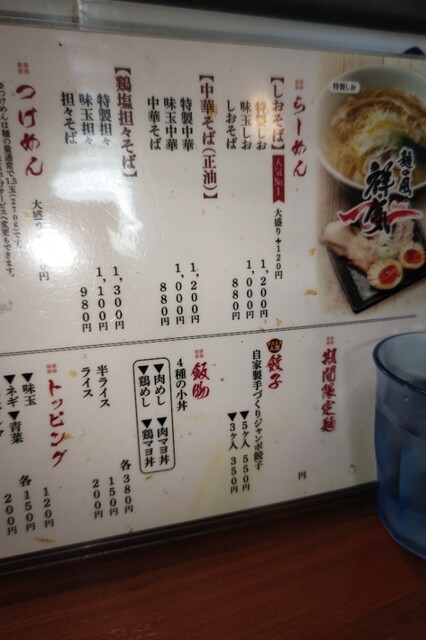 特製しお
麺の風
祥気
らーめん
【しおそば】人気No.1 大盛り+120円
特製しお 1,200円
味玉しお 1,000円
しおそば 880円
【中華そば(正油)】
特製中華 1,200円
味玉中華 1,000円
中華そば 880円
【鶏塩担々そば】
特製担々 1,300円
味玉担々 1,100円
担々そば 980円
つけめん
大盛り
期間限定麺
円
餃子
自家製手づくりジャンボ餃子
▼5ヶ入 550円
▼3ヶ入 350円
飯物
4種の小丼
▼肉めし ▼肉マヨ丼
▼鶏めし ▼鶏マヨ丼
各380円
半ライス 150円
ライス 200円
トッピング
▼味玉 120円
▼ネギ ▼青菜 各150円
200円